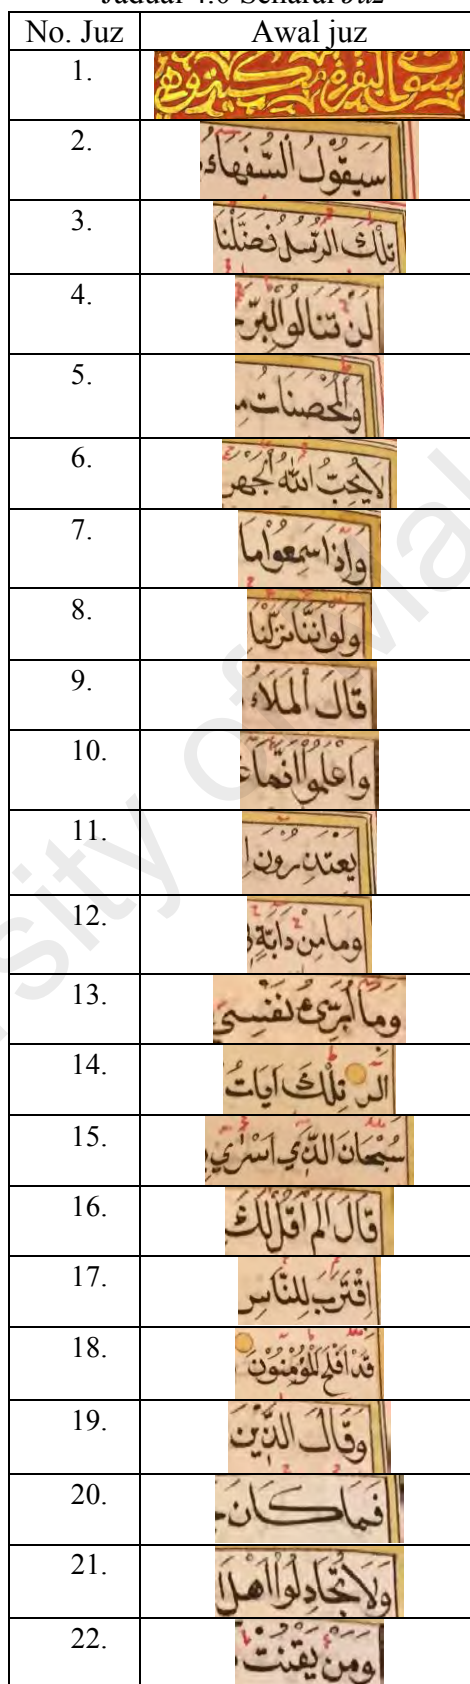 Jadual 4.6 Senarai Juz
No. Juz Awal juz
1. سورة البقرة
2. سَيَقُوْلُ السُّفَهَاءُ
3. تِلْكَ الرُّسُلُ فَضَّلْنَا
4. لَنْ تَنَالُوا الْبِرَّ
5. وَالْمُحْصَنَاتُ مِ
6. لَا يُحِبُّ اللّٰهُ الْجَهْرَ
7. وَاِذَا سَمِعُوْا مَا
8. وَلَوْ اَنَّنَا نَزَّلْنَا
9. قَالَ الْمَلَاءُ
10. وَاعْلَمُوا اَنَّمَا
11. يَعْتَذِرُوْنَ اِ
12. وَمَا مِنْ دَابَّةٍ
13. وَمَا اُبَرِّئُ نَفْسِي
14. الٓرٰ تِلْكَ اٰيَاتُ
15. سُبْحَانَ الَّذِي اَسْرٰي
16. قَالَ اَلَمْ اَقُلْ لَكَ
17. اِقْتَرَبَ لِلنَّاسِ
18. قَدْ اَفْلَحَ الْمُؤْمِنُوْنَ
19. وَقَالَ الَّذِيْنَ
20. فَمَا كَانَ
21. وَلَا تُجَادِلُوْا اَهْلَ
22. وَمَنْ يَقْنُتْ
University of Mal